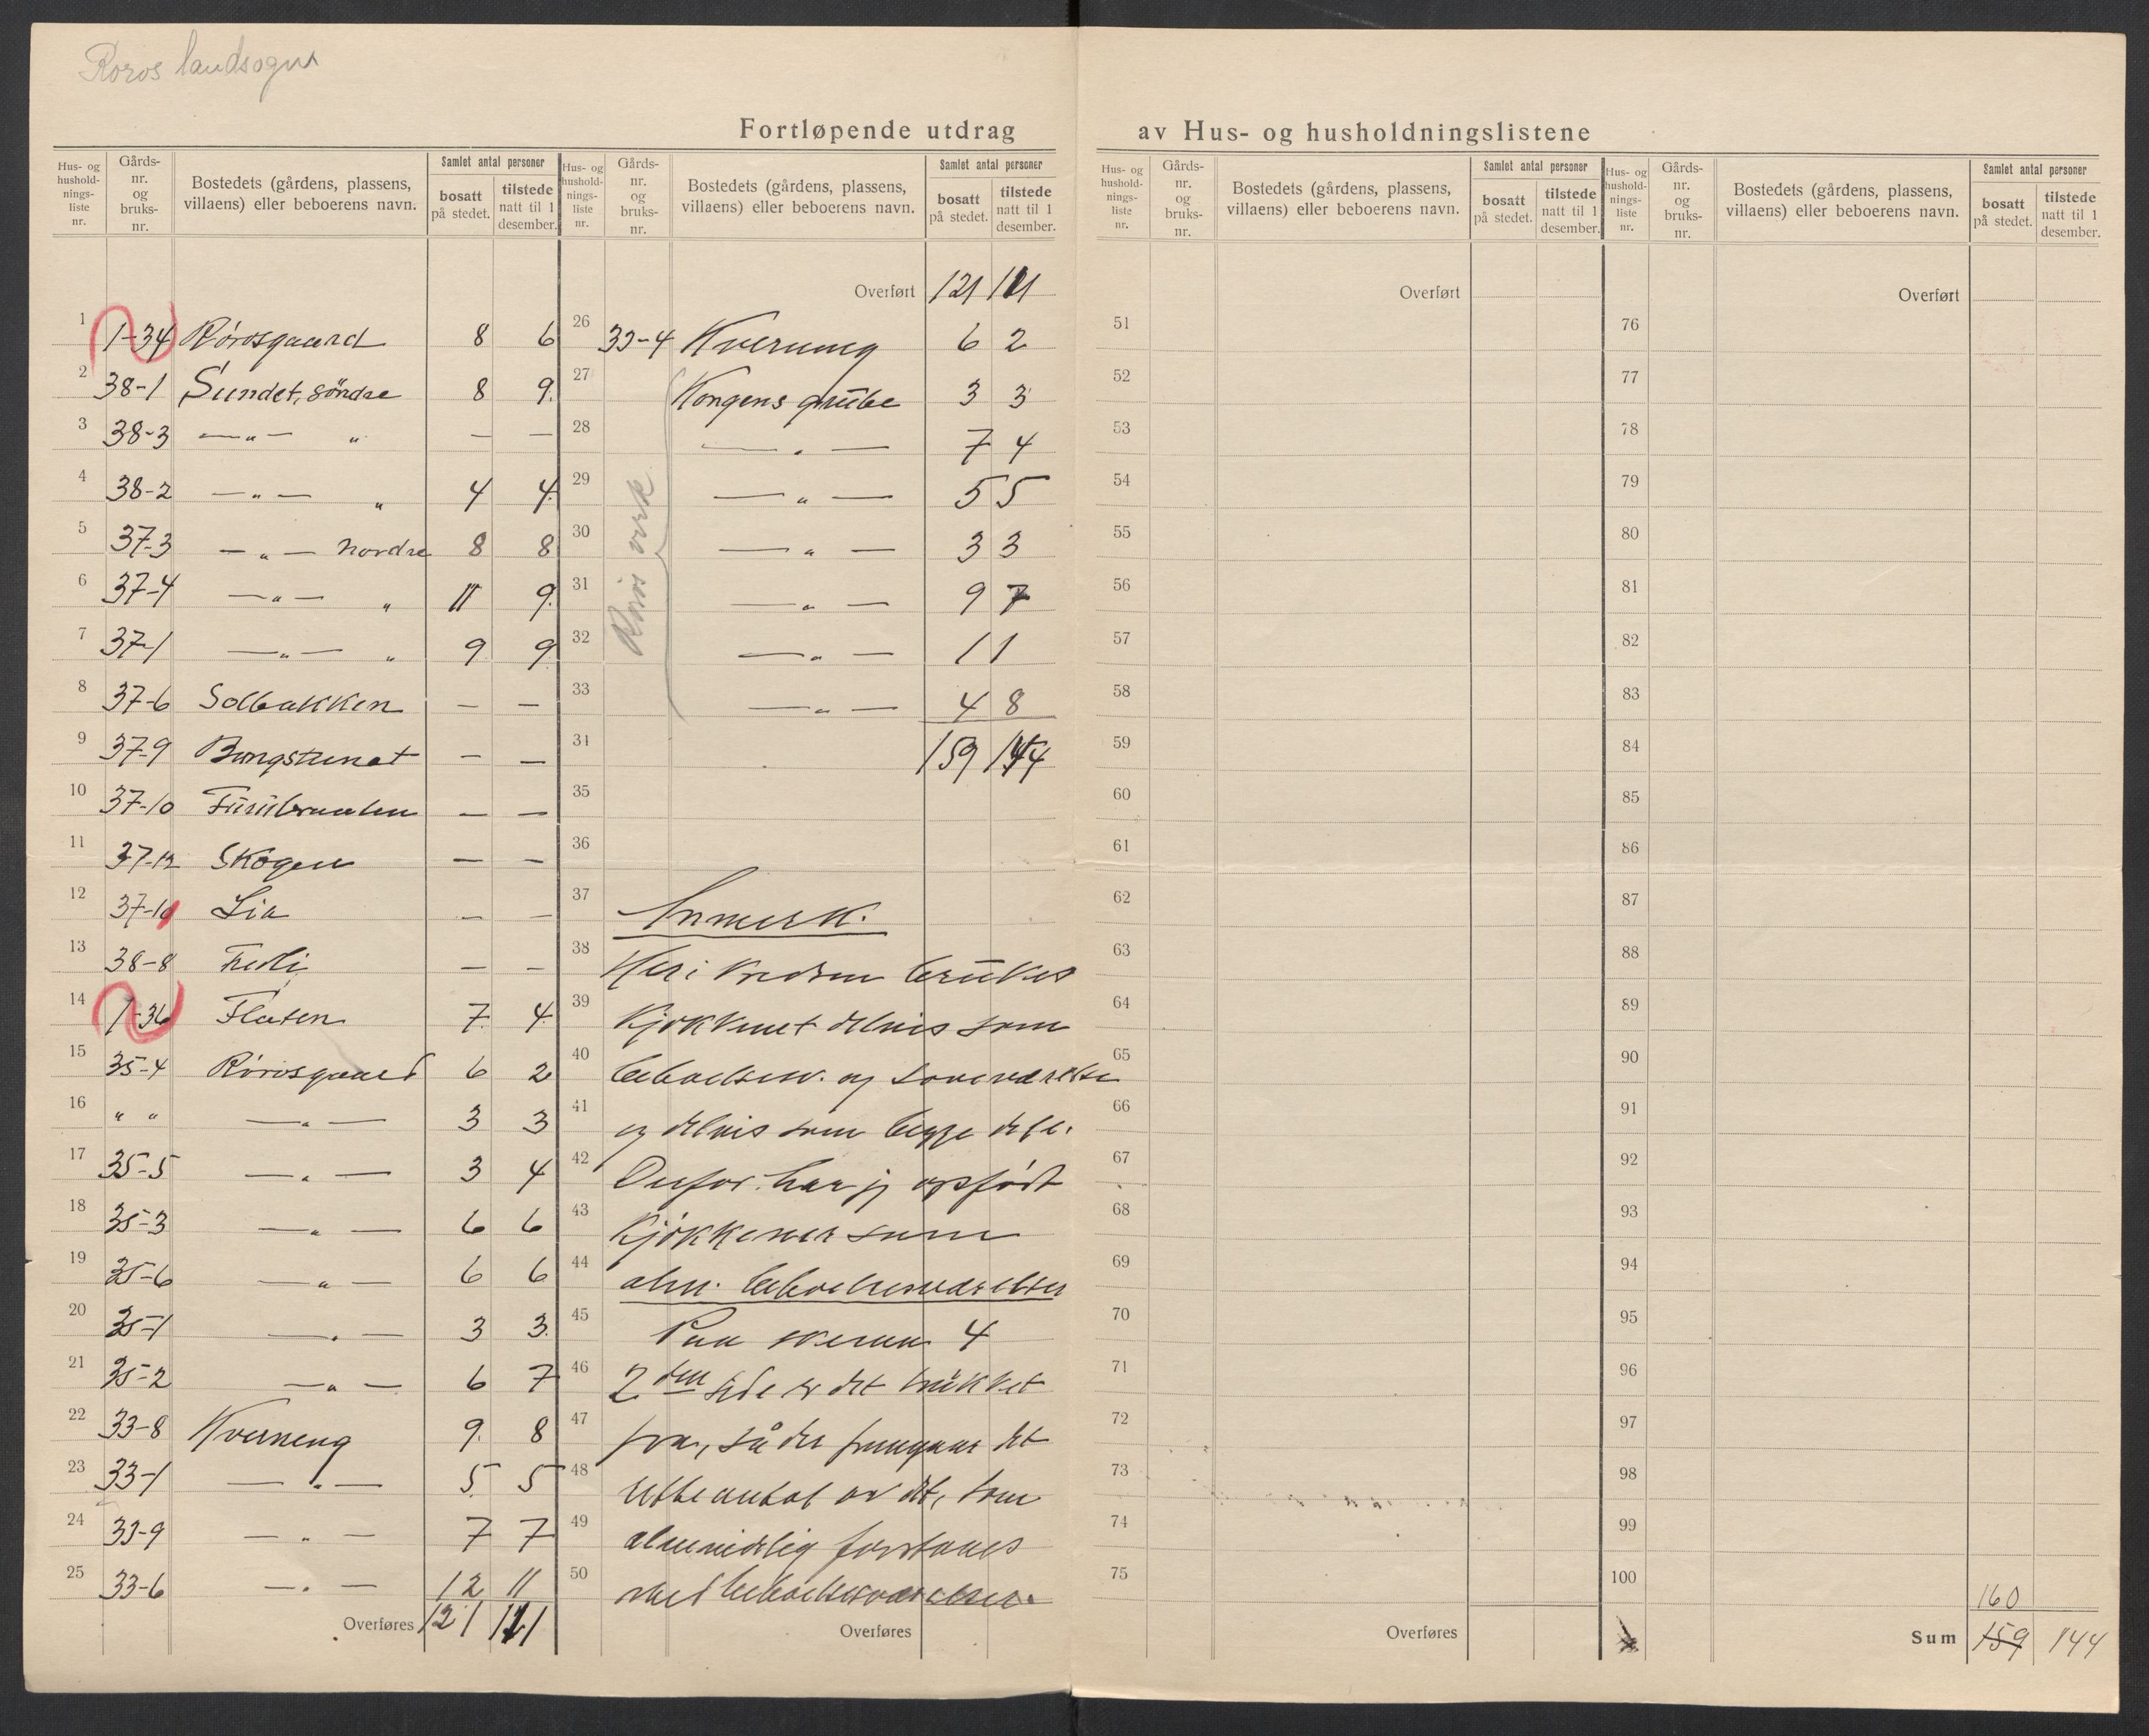 Røros landsogn
Fortløpende utdrag av Hus- og husholdningslistene
Hus- og husholdnings-liste nr. Gårds-nr. og bruks-nr. Bostedets (gårdens, plassens, villaens) eller beboerens navn. Samlet antal personer bosatt på stedet. tilstede natt til 1 desember.
1 1-34 Rörosgaard 8 6
2 38-1 Sundet, söndre 8 9.
3 38-3 —„— „ — —
4 38-2 —„— „ 4 4.
5 37-3 —„— Nordre 8 8
6 37-4 —„— „ 11 9.
7 37-1 —„— „ 9 9.
8 37-6 Solbakken — —
9 37-9 — —
10 37-10 — —
11 37-12 Skogen — —
12 37-10 Lia — —
13 38-8 — —
14 1-36 Flaten 7 4
15 35-4 Rörosgaard 6 2
16 „ „ —„— 3 3
17 35-5 —„— 3 4
18 35-3 —„— 6 6
19 35-6 —„— 6 6
20 35-1 —„— 3 3.
21 35-2 —„— 6 7
22 33-8 Kverneng 9. 8
23 33-1 —„— 5. 5
24 33-9 —„— 7 7
25 33-6 —„— 12 11
Overføres 121 121
Hus- og husholdnings-liste nr. Gårds-nr. og bruks-nr. Bostedets (gårdens, plassens, villaens) eller beboerens navn. Samlet antal personer bosatt på stedet. tilstede natt til 1 desember.
Overført 121 111
26 33-4 Kverneng 6 2
Røros verk
27 Kongens grube 3 3
28 —„— 7 4
29 —„— 5 5
30 —„— 3 3
31 —„— 9 7
32 —„— 1 1
33 —„— 4 8
31 159 144
35
36
37 Anmerk.
38 Her i kredsen brukes
39 kjøkkenet delvis som
40 beboelsesv. og soveværelse
41 og delvis som begge dele.
42 Derfor har jeg opført
43 Kjøkkener som
44 alm. beboelsesværelser
45 Paa skema 4
46 2den side er det trükket
47 fra, så der fremgaar det
48 rette antal av det, som
49 almindelig forstaaes
50 med beboelsesværelser.
Overføres
Hus- og husholdnings-liste nr. Gårds-nr. og bruks-nr. Bostedets (gårdens, plassens, villaens) eller beboerens navn. Samlet antal personer bosatt på stedet. tilstede natt til 1 desember.
Overført
51
52
53
54
55
56
57
58
59
60
61
62
63
64
65
66
67
68
69
70
71
72
73
74
75
Overføres
Hus- og husholdnings-liste nr. Gårds-nr. og bruks-nr. Bostedets (gårdens, plassens, villaens) eller beboerens navn. Samlet antal personer bosatt på stedet. tilstede natt til 1 desember.
Overført
76
77
78
79
80
81
82
83
84
85
86
87
88
89
90
91
92
93
94
95
96
97
98
99
100
160
Sum 159 144